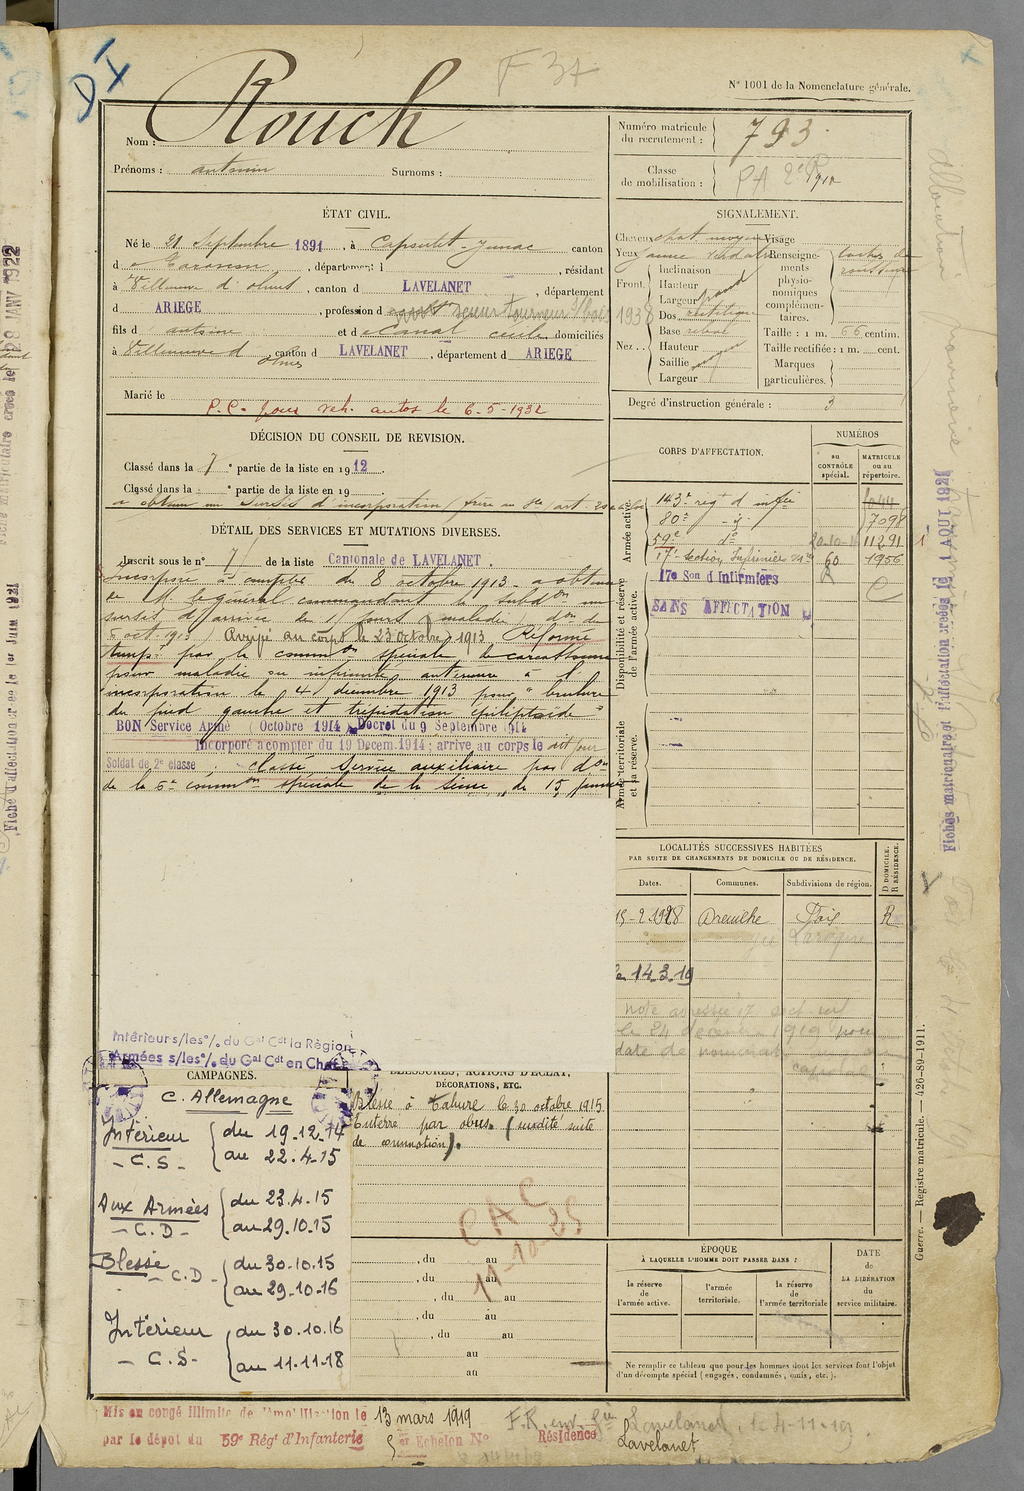 D I
F 37
N° 1001 de la Nomenclature générale.
Nom : Rouch
Prénoms : antonin Surnoms :
Numéro matricule du recrutement : 793
Classe de mobilisation : 1910
ÉTAT CIVIL.
Né le 21 Septembre 1891, à Capoulet-Junac canton
d Tarascon, département d , résidant
à Villeneuve d'olmes, canton d LAVELANET, département
d ARIEGE, profession d scieur tourneur s/bois 1938
fils d antoine et de Canal cécile domiciliés
à Villeneuve d olmes canton d LAVELANET, département d ARIEGE
Marié le
P.C. pour veh. autos le 6-5-1932
SIGNALEMENT.
Cheveux chat moyen Visage
Yeux jaunes verdatre
Front. Inclinaison
Hauteur
Largeur grand
Nez Dos rectiligne
Base relevé
Hauteur
Saillie
Largeur
Renseignements physionomiques complémentaires. taches de rousseur
Taille : 1 m. 66 centim.
Taille rectifiée : 1 m. cent.
Marques particulières.
Degré d'instruction générale : 3
DÉCISION DU CONSEIL DE REVISION.
Classé dans la 7e partie de la liste en 1912.
Classé dans la e partie de la liste en 19
a obtenu un sursis d'incorporation (frère au
DÉTAIL DES SERVICES ET MUTATIONS DIVERSES.
Inscrit sous le n° 7 de la liste Cantonale de LAVELANET.
Incorporé à compter du 8 octobre 1913 a obtenu
de M. le général commandant la subdon un
sursis d'arrivée de 15 jours (maladie) don du
6 oct 1913) Arrivé au corps le 23 octobre 1913 Réformé
temp. par la common spéciale de carcassonne
pour maladie ou infirmité antérieure à l'
incorporation le 4 décembre 1913 pour "
du pied gauche et trépidation épileptoïde"
BON Service Armé Octobre 1914 Décret du 9 Septembre 1914
Incorporé à compter du 19 Decem. 1914; arrivé au corps le dit jour
Soldat de 2e classe. Classé Service auxiliaire par don
de la 6e common spéciale de la Seine du 15 janvier
CORPS D'AFFECTATION.
NUMÉROS
AU CONTRÔLE spécial.
MATRICULE ou au répertoire.
Armée active.
143e regt d'infie
80e - id 7098
59e do 20-10-16 11291
17e Section Infirmiers Mres 60 1956
Disponibilité et réserve de l'armée active.
17e Son d'Infirmiers
SANS AFFECTATION
Armée territoriale et sa réserve.
LOCALITÉS SUCCESSIVES HABITÉES
PAR SUITE DE CHANGEMENTS DE DOMICILE OU DE RÉSIDENCE.
Dates. Communes. Subdivisions de région. D DOMICILE. R RÉSIDENCE.
15-2-1928 Dreuilhe Foix R
le 14.3.19
note adressée 17 sect inf
le 24 décembre 1919 pour
date de nominat
caporal
Intérieur s/les o/. du Gal Cdt la Région
Armées s/les o/. du Gal Cdt en Chef
CAMPAGNES.
C. Allemagne
Intérieur - C.S - du 19-12-14
au 22.4.15
Aux Armées - C.D - du 23.4.15
au 29.10.15
Blessé - C.D - du 30-10.15
au 29-10-16
Intérieur - C.S- du 30.10.16
au 11-11-18
BLESSURES, ACTIONS D'ÉCLAT,
DÉCORATIONS, ETC.
Blessé à Tahure le 30 octobre 1915
Enterré par obus. (surdité suite
de commotion).
CAC
11-10-25
, du au
, du au
, du au
, du au
, du au
au
au
ÉPOQUE
À LAQUELLE L'HOMME DOIT PASSER DANS :
la réserve de l'armée active.
l'armée territoriale.
la réserve de l'armée territoriale
DATE DE LA LIBÉRATION du service militaire.
Ne remplir ce tableau que pour les hommes dont les services font l'objet
d'un décompte spécial (engagés, condamnés, omis, etc.).
Mis en congé illimité de démobilisation le 13 mars 1919
par le dépôt du 59e Régt d'Infanterie 5er Echelon No Résidence Lavelanet
F.R. env. Gie Lavelanet, le 4-11-19.
Guerre. — Registre matricule. — 426-89-1911.
Fiches matricule et d'affectation créées le 1 AOUT 1921
Fiche matriculaire créée le 23 JANV 1922
Fiche d'affectation créée le 1er Juin 1921